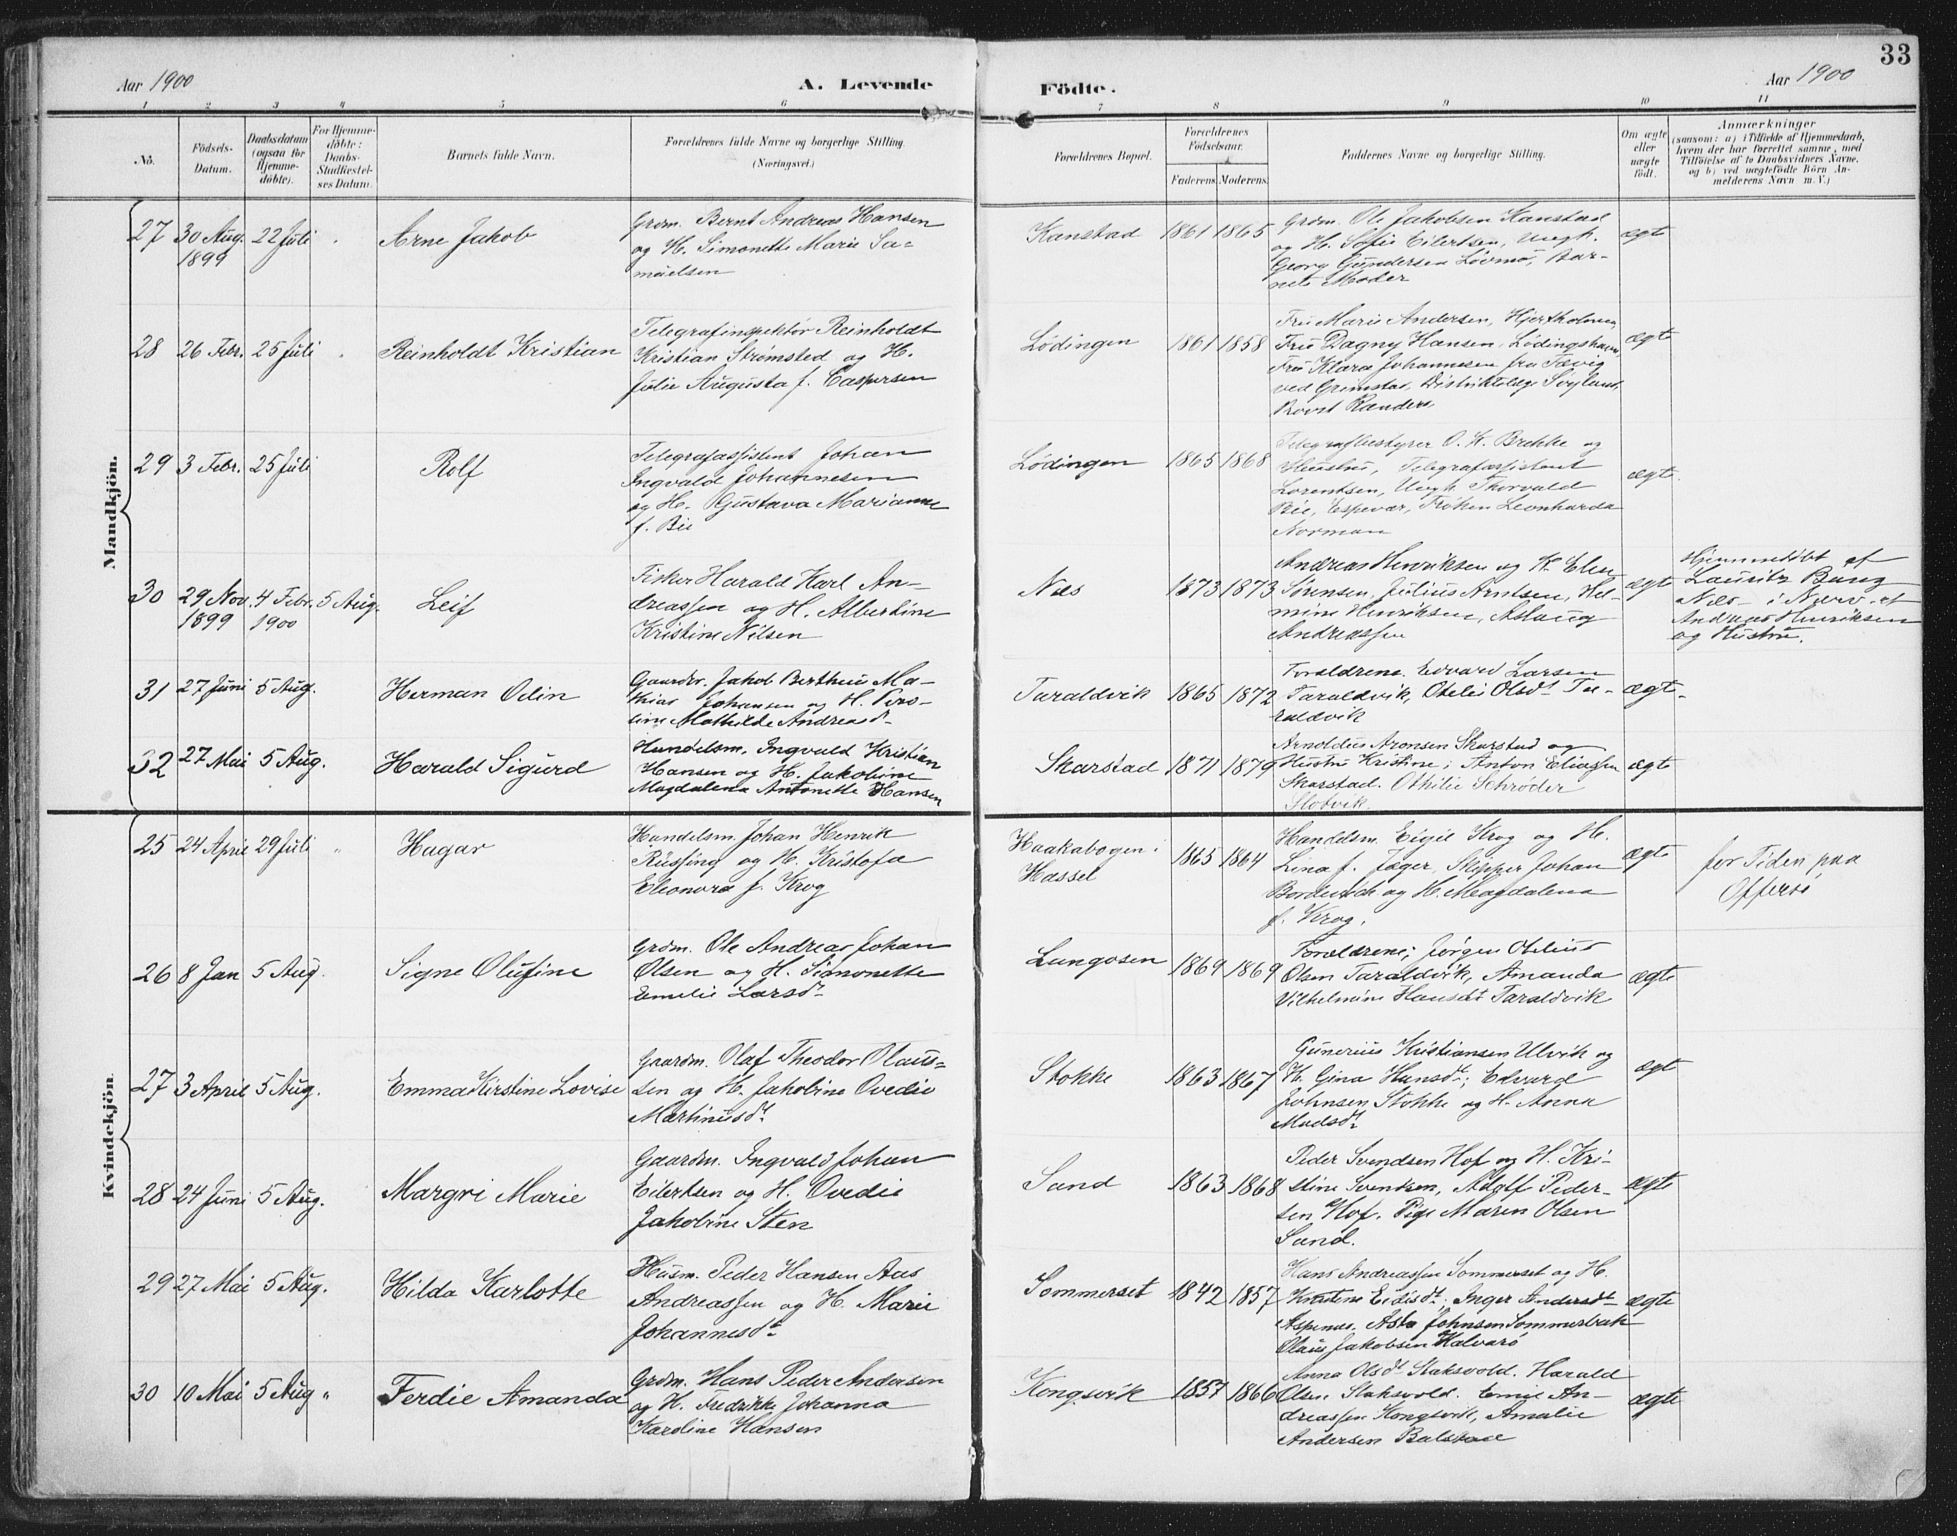 33
Aar 1900
A. Levende
Födte.
Aar 1900
1 2 3 4 5 6 7 8 9 10 11
No.
Födsels-
Datum.
Daabsdatum
(ogsaa for
Hjemme-
döbte).
For Hjemme-
döbte:
Daabs-
Stadfæstel-
ses Datum.
Barnets fulde Navn.
Forældrenes fulde Navne og borgerlige Stilling.
(Næringsvei.)
Forældrenes Bopæl.
Forældrenes
Födselsaar.
Faderens Moderens
Faddernes Navne og borgerlige Stilling.
Om ægte
eller
uægte
födt.
Anmærkninger
(saasom: a) i Tilfælde af Hjemmedaab,
hvem der har forrettet samme, med
Tilföielse af to Daabsvidners Navne,
og b) ved uægtefödte Börn An-
melderens Navn m. V.)
Mandkjön.
27
30 Aug.
1899
22 Juli
Arne Jakob
Grdm. Bernt Andreas Hansen
og H. Simonette Marie Sa-
muelsen
Kanstad
1861
1865
Grdm. Ole Jakobsen Kanstad
og H. Sofie Eilertsen, Ungk.
Georg Gundersen Løvmo, Bar-
nets Moder
ægte
28
26 Febr.
25 Juli
Reinholdt Kristian
Telegrafinspektør Reinholdt
Kristian Strømsted og H.
Julie Augusta f. Caspersen
Lødingen
1861
1858
Fru Marie Andersen, Hjertholmen,
Fru Dagny Hansen, Lødingshavn,
Fru Klara Johannesen fra
ved Grimstad, Distriktslæge
Provst Randers
ægte
29
3 Febr.
25 Juli
Rolf
Telegrafassistent Johan
Ingvald Johannesen
og H. Gustava Marianne
f. Bie
Lødingen
1865
1868
Telegrafbestyrer O. K. Brekke og
Hustru, Telegrafassistent
Lorentsen, Ungk. Thorvald
Bie, Espevær, Frøken Leonharda
Norman
ægte
30
29 Nov.
1899
4 Febr.
1900
5 Aug.
Leif
Fisker Harald Karl An-
dreassen og H. Albertine
Kristine Nilsen
Næs
1873
1873
Andreas Henriksen og H. Elen
Sørensen, Julius Arntsen, Hel-
mine Henriksen, Aslaug
Andreassen
ægte
Hjemmedøbt af
Lauritz Bang
Næs - i Nærv. af
Andreas Henriksen
og Hustru.
31
27 Juni
5 Aug.
Herman Odin
Gaardbr. Jakob Bertheus Ma-
thias Johansen og H. Petro-
line Mathilde Andreasdt.
Taraldvik
1865
1872
Forældrene. Edvard Larsen
Taraldvik, Otelie Olsdt. Ta-
raldvik
ægte
32
27 Mai
5 Aug.
Harald Sigurd
Handelsm. Ingvald Kristian
Hansen og H. Jakobine
Magdalena Antonette Hansen
Skarstad
1871
1879
Arnoldus Aronsen Skarstad og
Hustru Kristine; Anton Eliassen
Skarstad. Othilie Schrøder
Slotvik.
ægte
Kvindekjön.
25
24 April
29 Juli
"
Hagar
Handelsm. Johan Henrik
Ryssing og H. Kristofa
Eleonora f. Krog
Haakabogen i
Hassel
1865
1864
Handelsm. Eigil Krog og H.
Lina f. Jæger, Skipper Johan
Bordevick og H. Magdalena
f. Krog.
ægte
for Tiden paa
Offersø
26
8 Jan
5 Aug.
Signe Olufine
Grdm. Ole Andreas Johan
Olsen og H. Simonette
Emelie Larsdt.
Lungosen
1869
1869
Forældrene; Jørgen Otelius
Olsen Taraldvik, Amanda
Vilhelmine Hansdt. Taraldvik
ægte
27
3 April
5 Aug.
Emma Kirstine Lovise
Gaardm. Olaf Theodor Olaus-
sen og H. Jakobine Ovedie
Martinusdt.
Stokke
1863
1867
Gunerius Kristiansen Ulvik og
H. Gina Hansdt; Edvard
Johnsen Stokke og H. Anna
Madsdt.
ægt
28
24 Juni
5 Aug.
Margri Marie
Gaardm. Ingvald Johan
Eilertsen og H. Ovedie
Jakobine Sten
Sand
1863
1868
Peder Svendsen Hof og H. Kri-
stine Svendsen, Adolf Peder-
sen Hof. Pige Maren Olsen
Sand.
ægte
29
27 Mai
5 Aug.
Hilda Karlotte
Husm. Peder Hansen Aas
Andreassen og H. Marie
Johannesdt.
Sommerset
1842
1857
Hans Andreassen Sommerset og H.
Kristine Eidisdt. Inger Andersdt.
Aspenes. Asta Johnsen Sommerbak
Olaus Jakobsen Halvarø
ægte
30
10 Mai
5 Aug
"
Ferdie Amanda
Grdm. Hans Peder Andersen
og H. Fredrikke Johanna
Karoline Hansen
Kongsvik
1857
1866
Anna Olsdt. Stakvold. Harald
Olsen Stakvold. Emil An-
dreassen Kongsvik, Amalie
Andersen Balstad
ægte